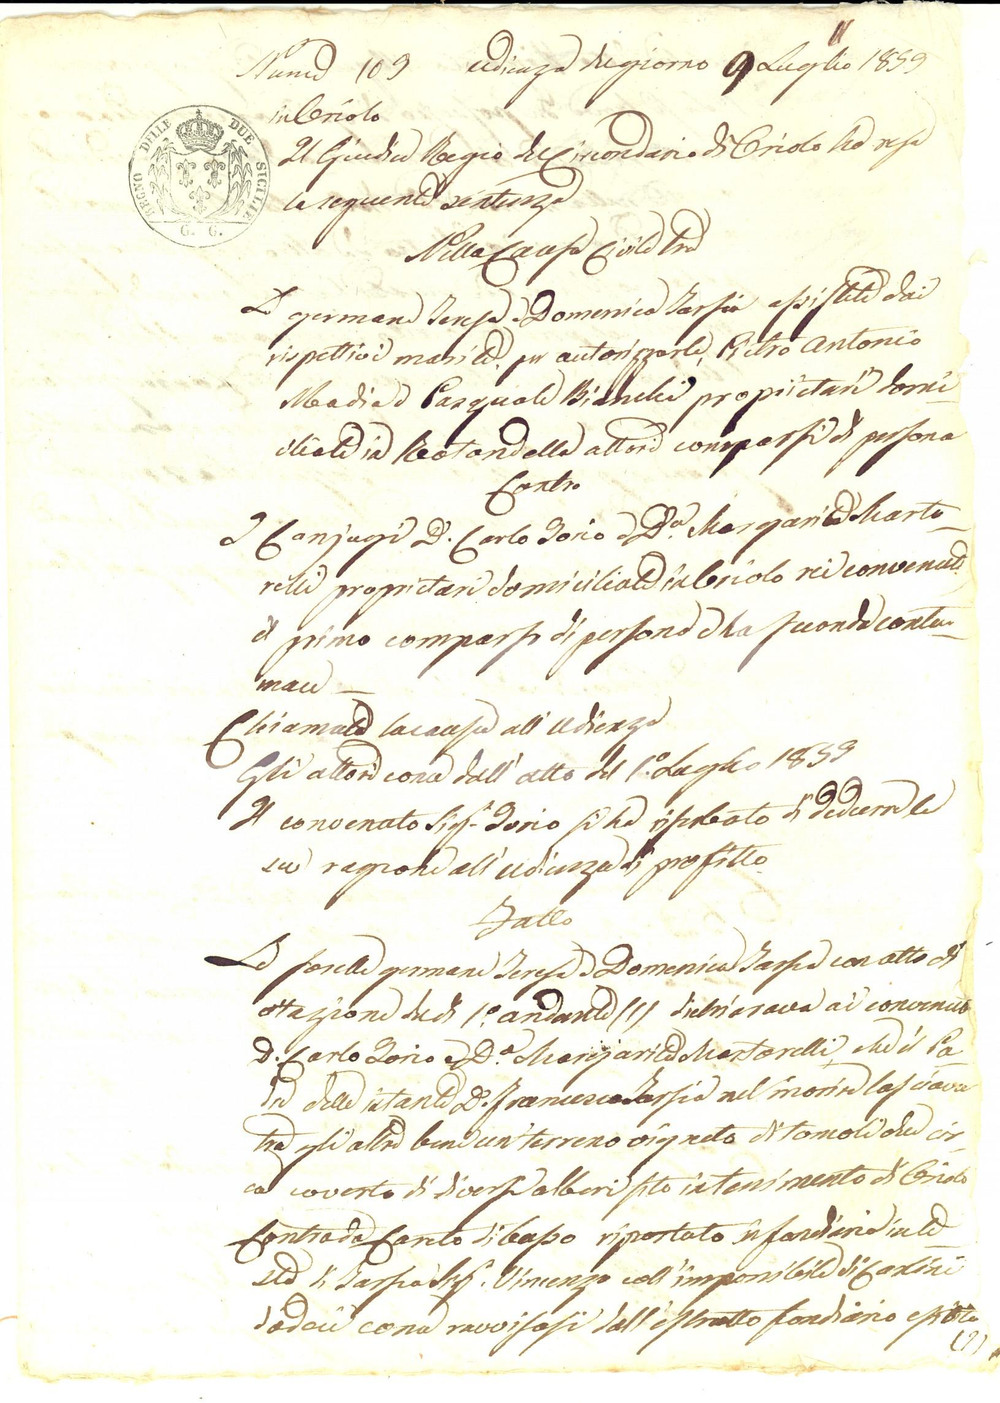 Num. 109 udienza del giorno 9 Luglio 1859
in Oriolo
REGNO DELLE DUE SICILIE
G. G.
Il Giudice Regio del Circondario di Oriolo ha reso
la seguente sentenza
Nella Causa Civile tra
Le germane Teresa e Domenica Tarsia assistite dai
rispettivi mariti per autorizzarle, Pietro Antonio
e Pasquale Bianchi proprietari domi
ciliati in Rotondella attori comparsi di persona
Contro
I Conjugi D. Carlo Iorio e D.a Margarita Marto
relli proprietari domiciliati in Oriolo rei convenuti
il primo comparso di persona e la seconda contu-
mace
Chiamata la causa all'udienza
Gli attori come dall'atto del 1.o Luglio 1859
Il convenuto Sig.r Iorio si ha riserbato di dedurre le
sue ragioni all'udienza di profitto
Fatto
Le sorelle germane Teresa e Domenica Tarsia con atto di
citazione del dì 1.o andante (1) dichiarava ai convenuti
D. Carlo Iorio e D.a Margarita Martorelli, che il Pa
dre delle istanti D. Francesco Tarsia nel morire lasciava
tra gli altri beni un terreno vigneto di tomoli due cir
ca coverto di diversi alberi sito in tenimento di Oriolo
Contrada riportato in fondiaria in te
sta di Tarsia Vincenzo coll'imponibile di Carlini
dodici come ravvisasi dall'estratto fondiario esibito
(2)